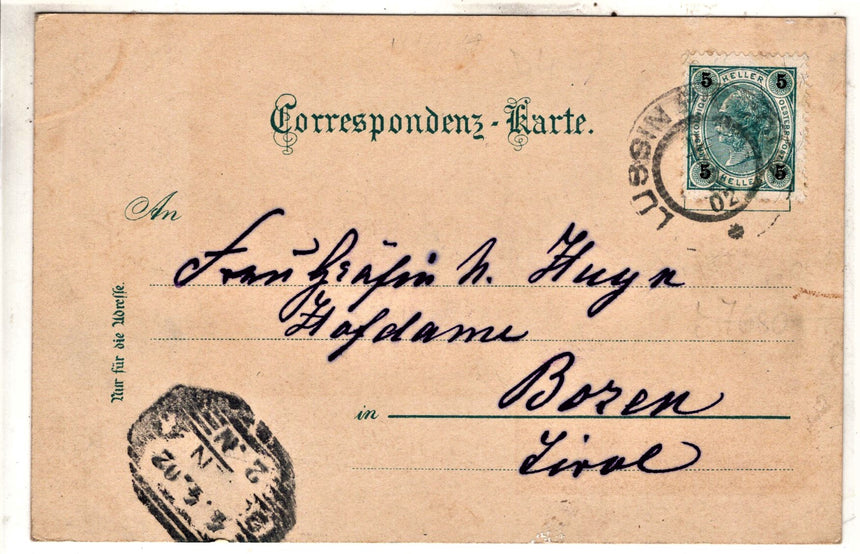 Correspondenz-Karte.
5 HELLER 5
5 HELLER 5
LUSSIN
02
An
Frau Gräfin N. Huyn
Hofdame
Nur für die Adresse.
in Bozen
Tirol
4.02